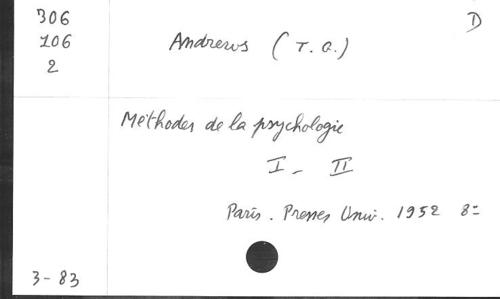 306
106
2
Andrews (T. G.)
D
Méthodes de la psychologie
I - II
Paris. Presses Univ. 1952 8º
3-83